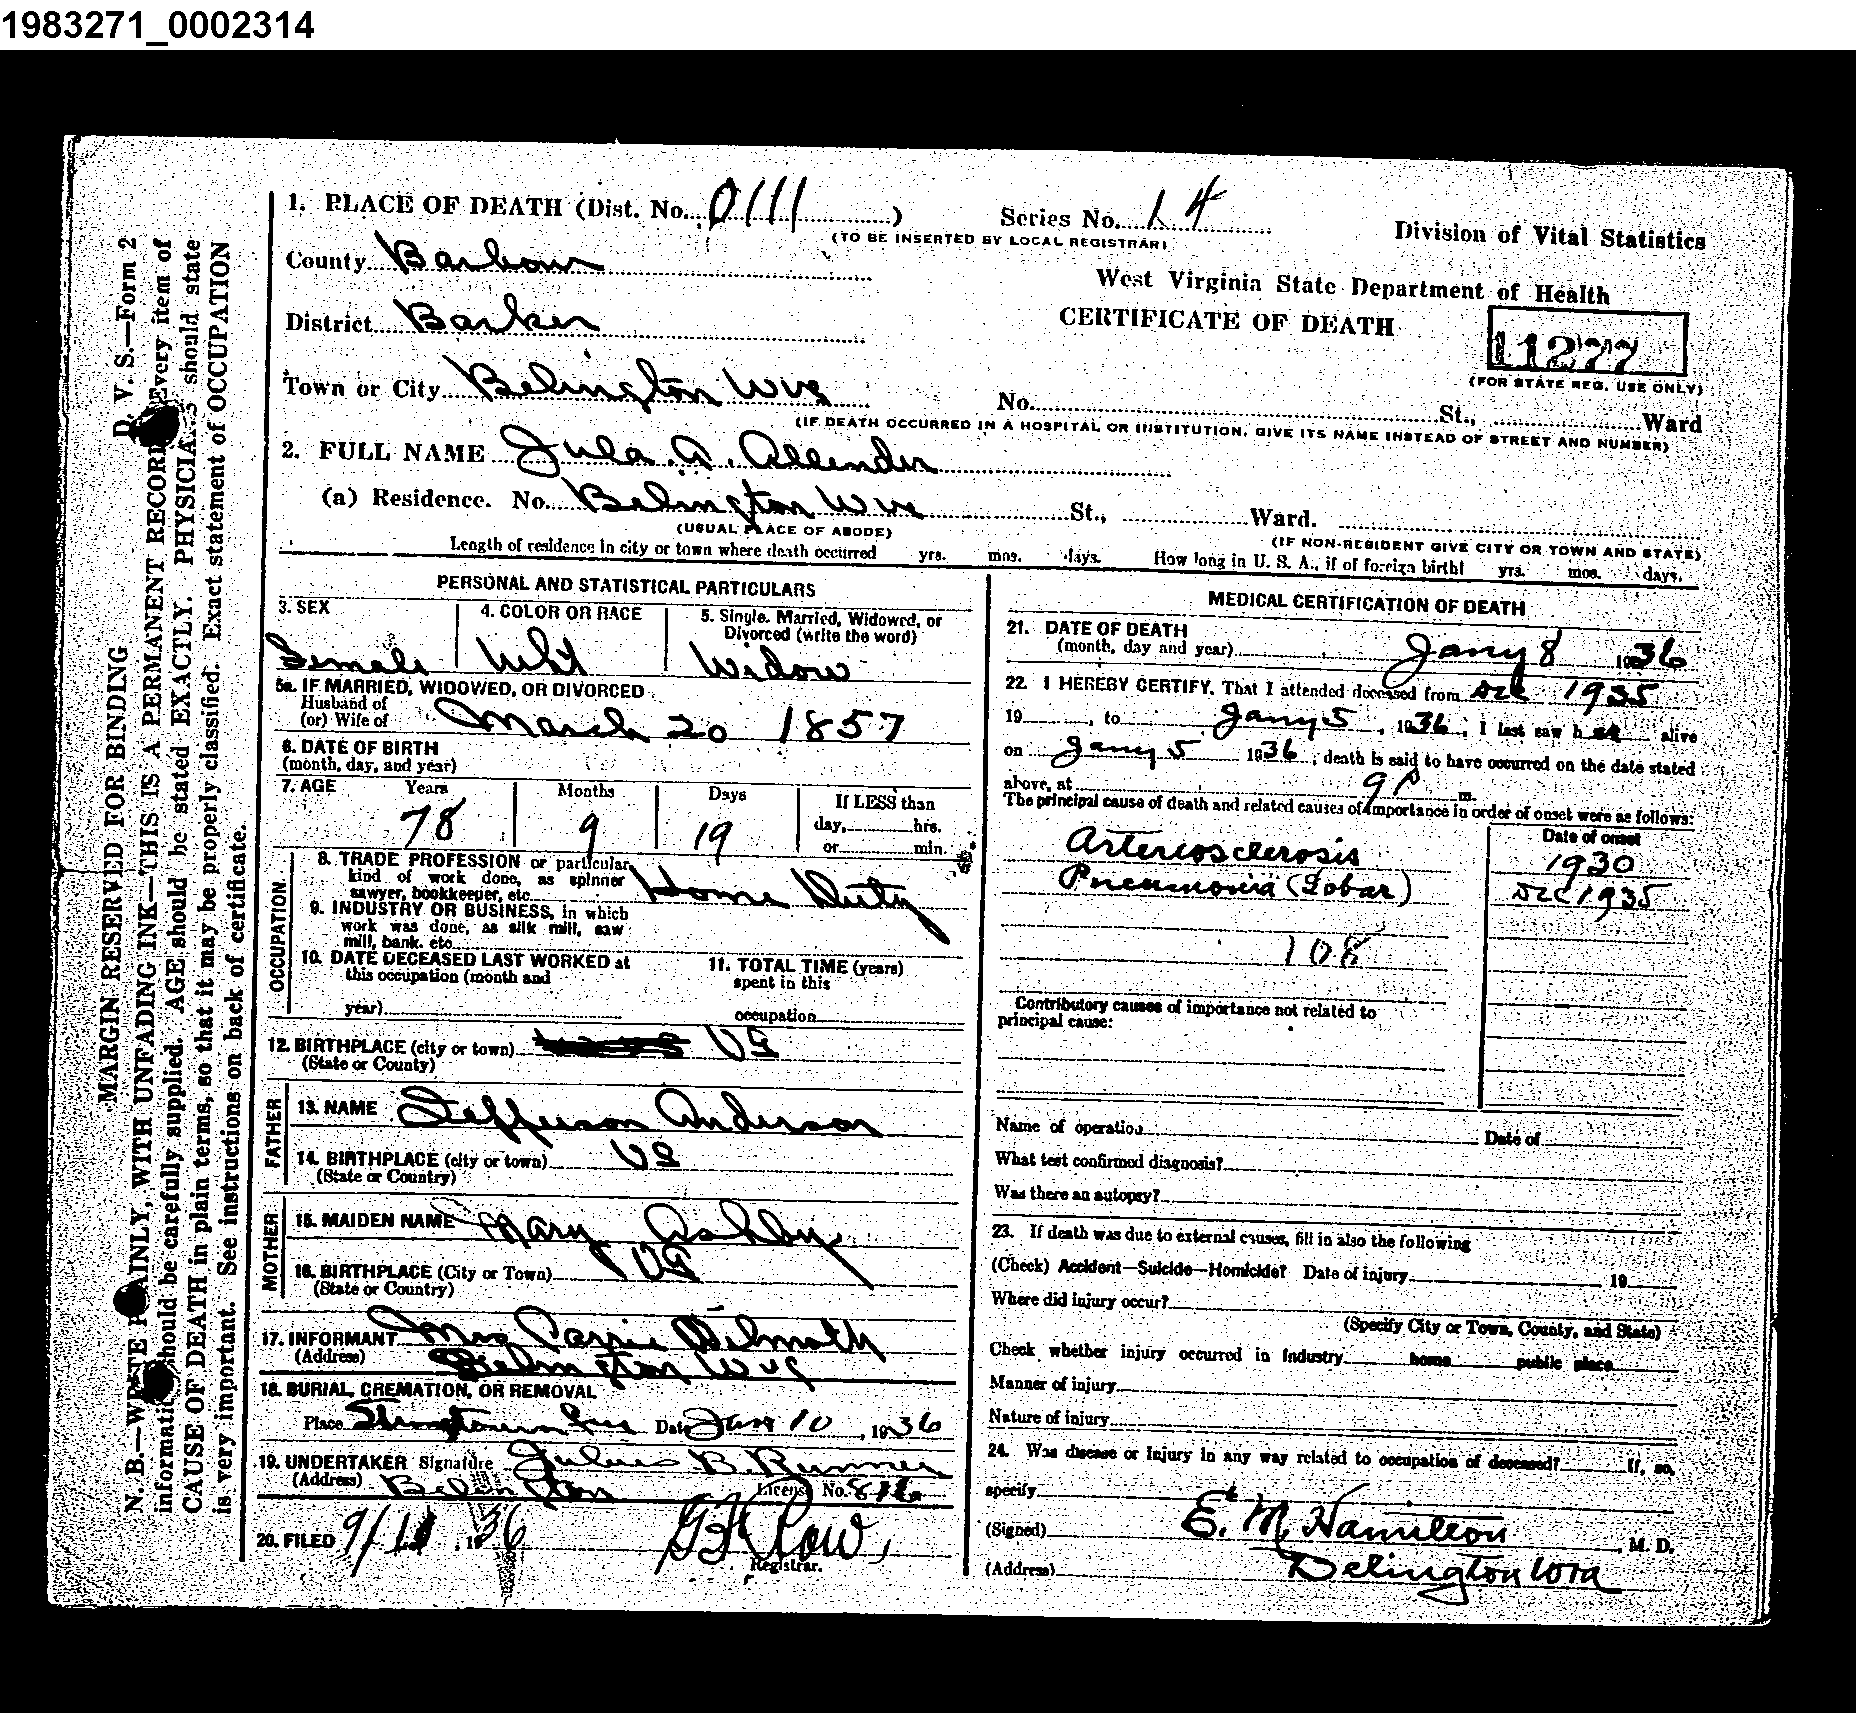 1983271_0002314
D. V. S.—Form 2
MARGIN RESERVED FOR BINDING
N. B.—WRITE PLAINLY, WITH UNFADING INK—THIS IS A PERMANENT RECORD Every item of
information should be carefully supplied. AGE should be stated EXACTLY. PHYSICIANS should state
CAUSE OF DEATH in plain terms, so that it may be properly classified. Exact statement of OCCUPATION
is very important. See instructions on back of certificate.
1. PLACE OF DEATH (Dist. No. 0111 ) Series No. 14
(TO BE INSERTED BY LOCAL REGISTRAR)
Division of Vital Statistics
County Barbour
West Virginia State Department of Health
District Barker
CERTIFICATE OF DEATH
11277
(FOR STATE REG. USE ONLY)
Town or City Belington Wva No. St., Ward
(IF DEATH OCCURRED IN A HOSPITAL OR INSTITUTION, GIVE ITS NAME INSTEAD OF STREET AND NUMBER)
2. FULL NAME Jula A. Allender
(a) Residence. No. Belington W va St., Ward.
(USUAL PLACE OF ABODE) (IF NON-RESIDENT GIVE CITY OR TOWN AND STATE)
Length of residence in city or town where death occurred yrs. mos. days. How long in U. S. A., if of foreign birth? yrs. mos. days.
PERSONAL AND STATISTICAL PARTICULARS
3. SEX 4. COLOR OR RACE 5. Single, Married, Widowed, or
Divorced (write the word)
Female Wht Widow
5a. IF MARRIED, WIDOWED, OR DIVORCED
Husband of
(or) Wife of March 20 1857
6. DATE OF BIRTH
(month, day, and year)
7. AGE Years Months Days If LESS than
78 9 19 day, hrs.
or min.
OCCUPATION
8. TRADE PROFESSION or particular
kind of work done, as spinner
sawyer, bookkeeper, etc. Home Duty
9. INDUSTRY OR BUSINESS, in which
work was done, as silk mill, saw
mill, bank, etc
10. DATE DECEASED LAST WORKED at
this occupation (month and
year)
11. TOTAL TIME (years)
spent in this
occupation
12. BIRTHPLACE (city or town) Va
(State or County)
FATHER
13. NAME Jefferson Anderson
14. BIRTHPLACE (city or town) Va
(State or Country)
MOTHER
15. MAIDEN NAME Mary Ashby
16. BIRTHPLACE (City or Town) Va
(State or Country)
17. INFORMANT Mrs Carrie
(Address) Belington W va
18. BURIAL, CREMATION, OR REMOVAL
Place Date Jan 10, 1936
19. UNDERTAKER Signature Julius B. Runner
(Address) Belington License No.
20. FILED 36
Registrar.
MEDICAL CERTIFICATION OF DEATH
21. DATE OF DEATH
(month, day and year) Jany 8 1936
22. I HEREBY CERTIFY, That I attended deceased from Dec 1935
19 , to Jany 5, 1936, I last saw h er alive
on Jany 5 1936, death is said to have occurred on the date stated
above, at 9 P m.
The principal cause of death and related causes of importance in order of onset were as follows:
Date of onset
Arteriosclerosis 1930
Pneumonia (Lobar) Dec 1935
108
Contributory causes of importance not related to
principal cause:
Name of operation Date of
What test confirmed diagnosis?
Was there an autopsy?
23. If death was due to external causes, fill in also the following
(Check) Accident—Suicide—Homicide? Date of injury 19
Where did injury occur?
(Specify City or Town, County, and State)
Check whether injury occurred in Industry home public place
Manner of injury
Nature of injury
24. Was disease or injury in any way related to occupation of deceased? If, so,
specify
(Signed) E. M. Hamilton, M. D.
(Address) Belington Wva